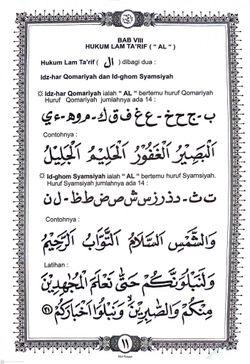 BAB VIII
HUKUM LAM TA'RIF ( " AL " )
Hukum Lam Ta'rif ( ال ) dibagi dua :
Idz-har Qomariyah dan Id-ghom Syamsiyah
Idz-har Qomariyah ialah " AL " bertemu huruf Qomariyah
Huruf Qomariyah jumlahnya ada 14 :
ب - ج ح خ - ع غ ف ق ك - م و ه - ء ي
Contohnya :
اَلْبَصِيْرُ الْغَفُوْرُ الْحَلِيْمُ الْجَلِيْلُ
Id-ghom Syamsiyah ialah " AL " bertemu huruf Syamsiyah.
Huruf Syamsiyah jumlahnya ada 14 :
ت ث - د ذ ر ز س ش ص ض ط ظ - ل ن
Contohnya :
وَالشَّمْسِ السَّلَامُ التَّوَّابُ الرَّحِيْمُ
Latihan :
وَلَنَبْلُوَنَّكُمْ حَتّٰى نَعْلَمَ الْمُجٰهِدِيْنَ
مِنْكُمْ وَالصّٰبِرِيْنَ وَنَبْلُوَا۟ اَخْبَارَكُمْ
١١